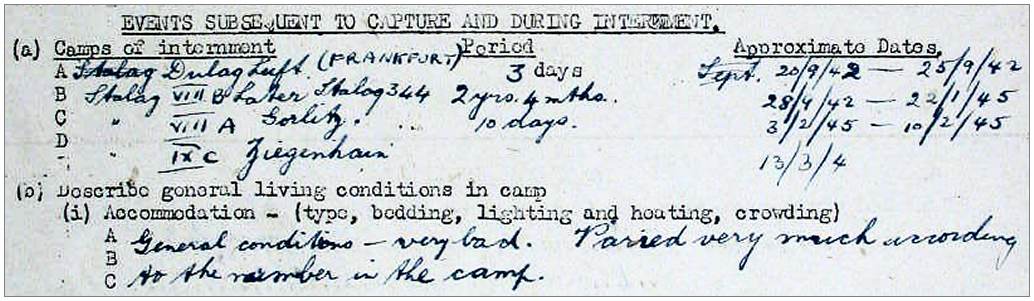 EVENTS SUBSEQUENT TO CAPTURE AND DURING INTERNMENT.
(a) Camps of internment Period Approximate Dates.
A Stalag Dulag Luft. (FRANKFURT) 3 days Sept. 20/9/42 — 25/9/42
B Stalag VIII B Later Stalag 344 2 yrs. 4 mths. 28/9/42 — 22/1/45
C " VIII A Gorlitz. 10 days. 3/2/45 — 10/2/45
D " IX C Ziegenhain 13/3/4
(b) Describe general living conditions in camp
(i) Accommodation - (type, bedding, lighting and heating, crowding)
A General conditions — very bad. Varied very much according
B
C to the number in the camp.